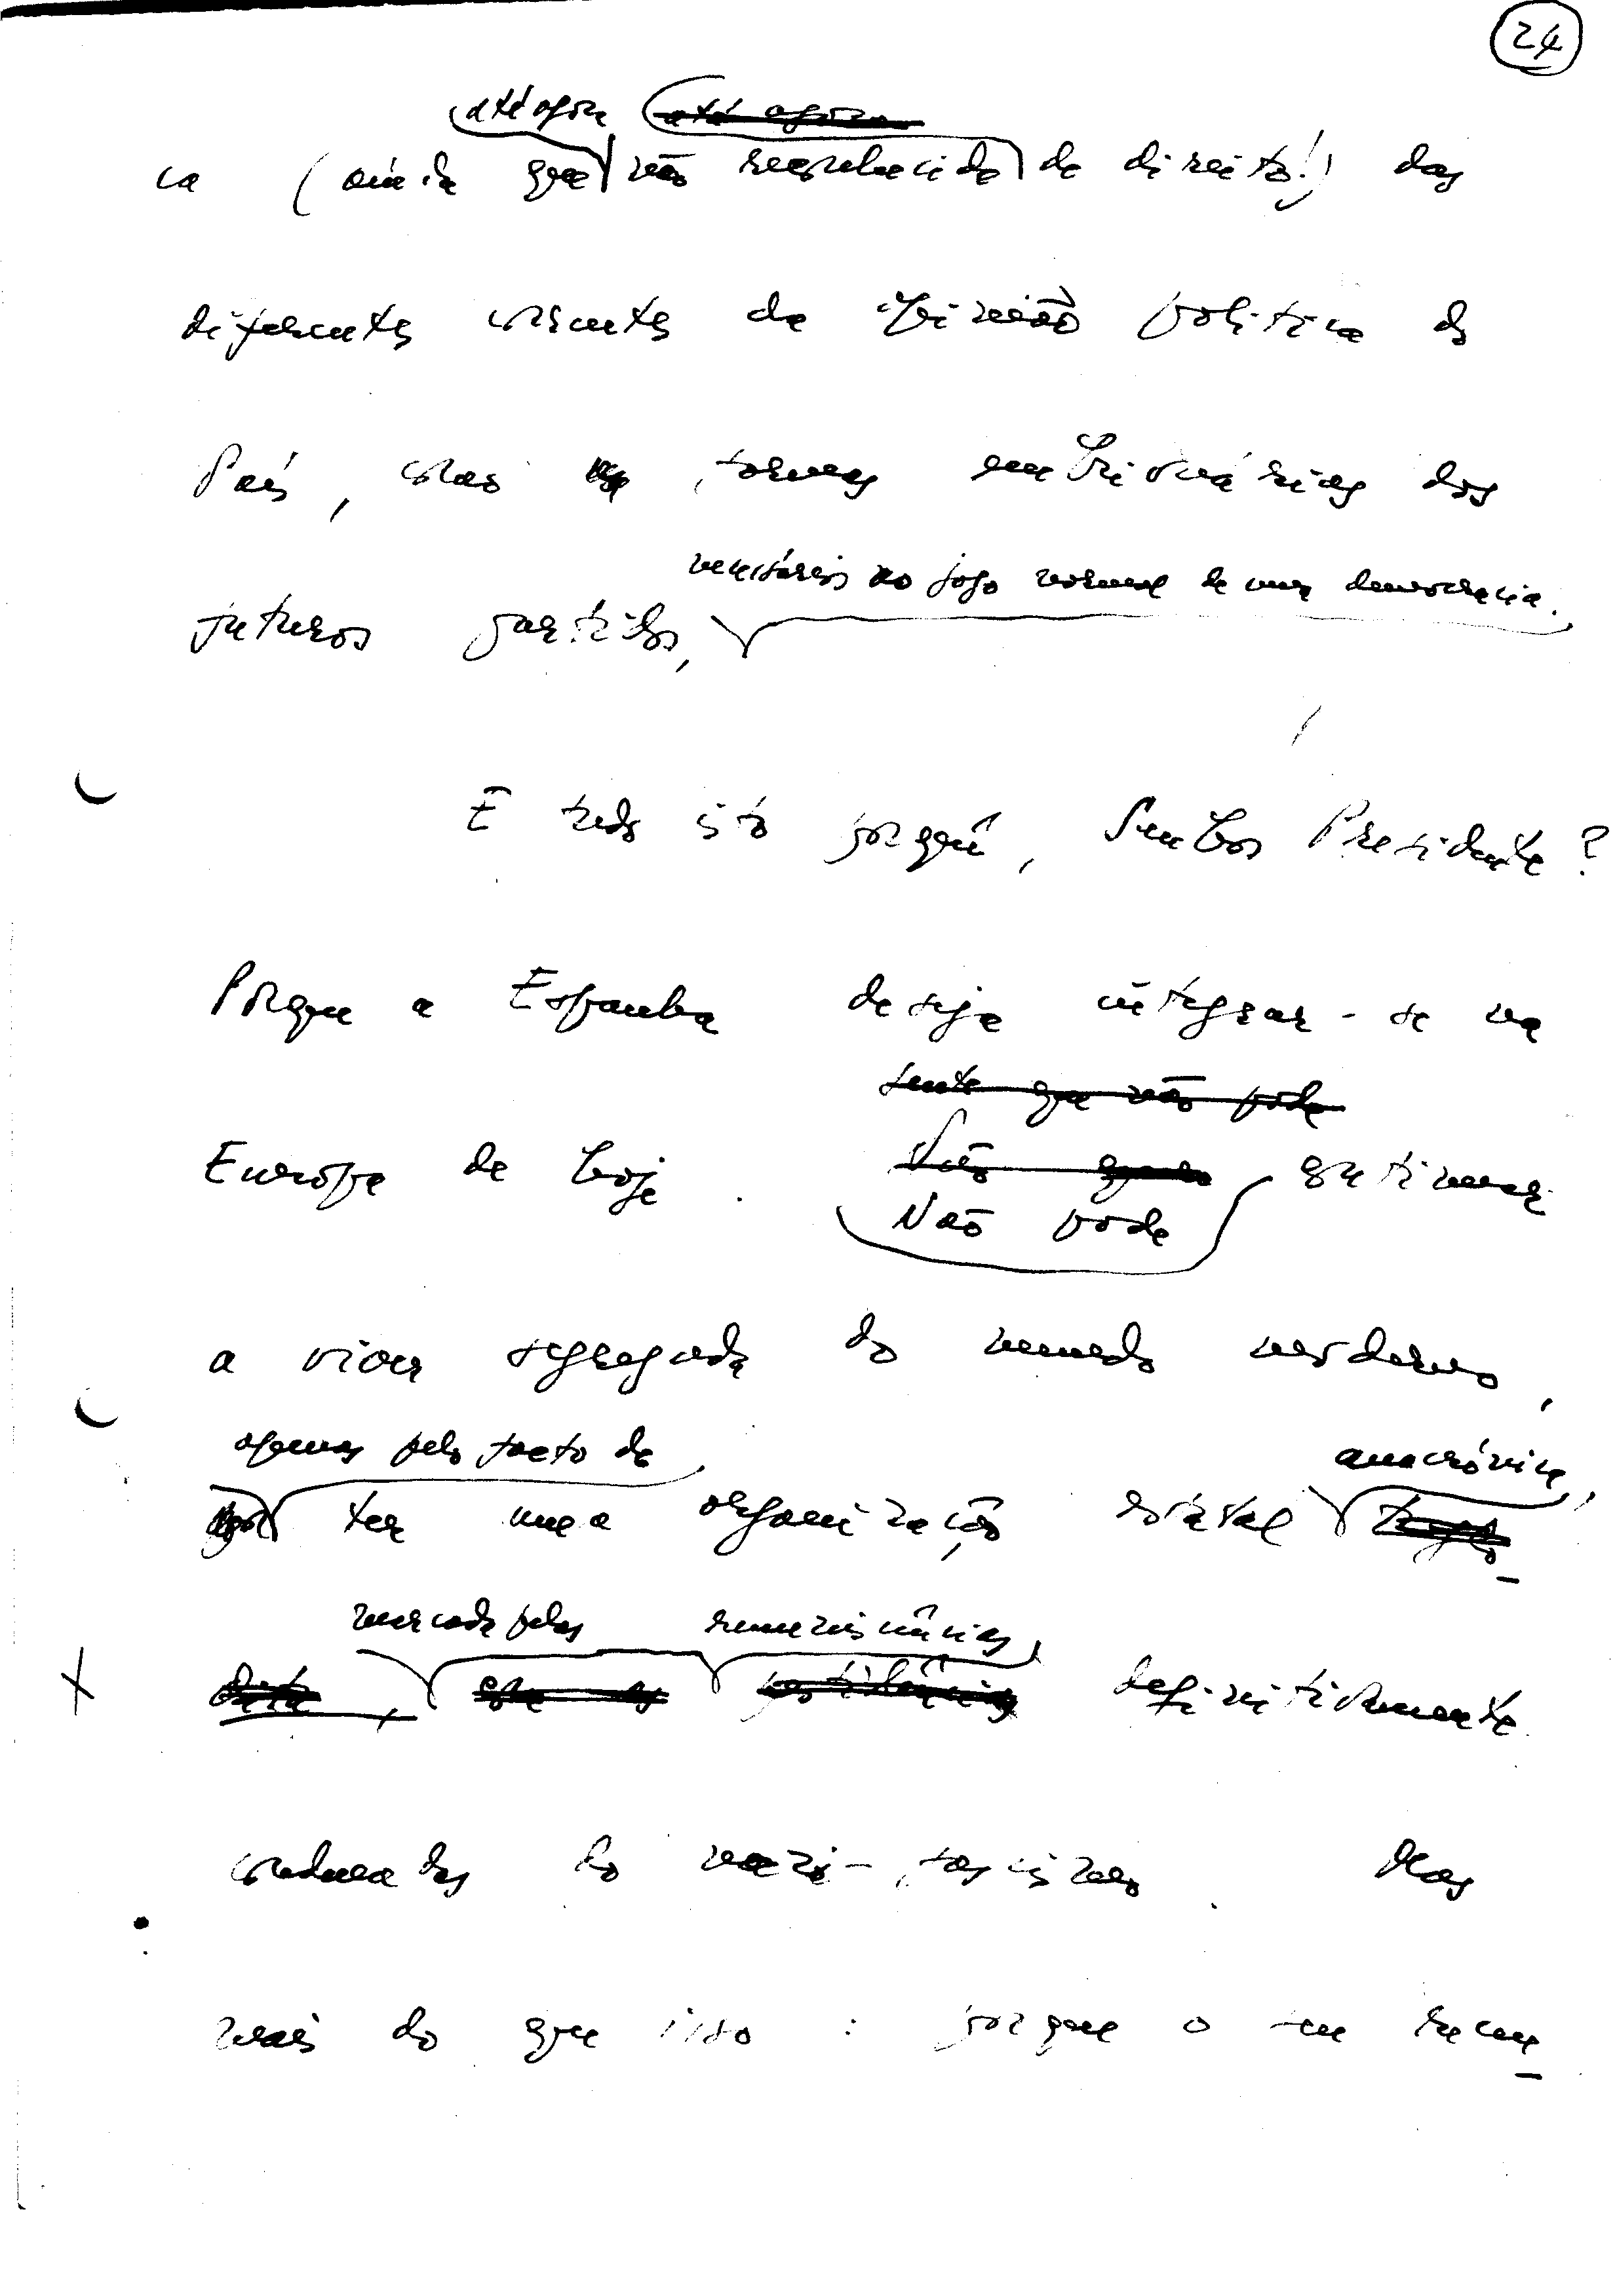 24
até agora até agora
ca (ainda que não reconhecida de direito!) das
diferentes correntes de opinião política do
País, como formas embrionárias dos
necessários ao jogo normal de uma democracia.
futuros partidos,
E tudo isto porquê, Senhor Presidente?
Porque a Espanha deseja integrar-se na
sente que não pode
Europa de hoje. Não quer continuar
Não pode
a viver segregada do mundo moderno,
apenas pelo facto de anacrónica,
ter uma organização estatal
marcada pelas reminiscências
definitivamente
condenadas do nazi-fascismo. Mas
mais do que isso: porque o seu